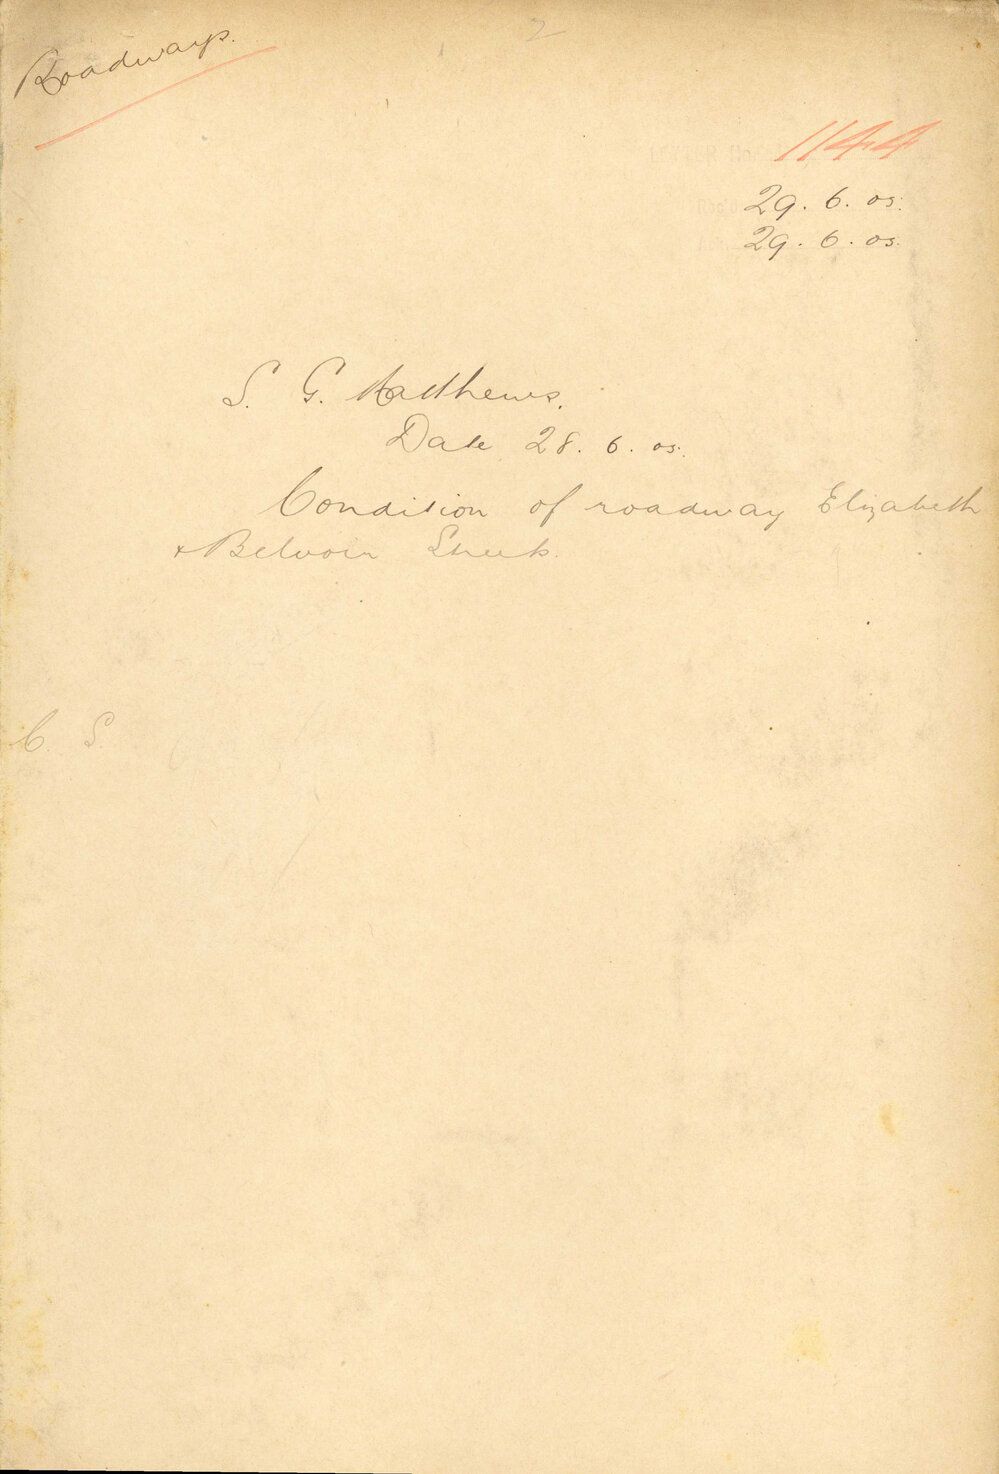 2
Roadways.
1144
29. 6. 05.
29. 6. 05.
S. G. Matthews.
Date 28. 6. 05.
Condition of roadway Elizabeth
& Belvoir Streets.
C. S.